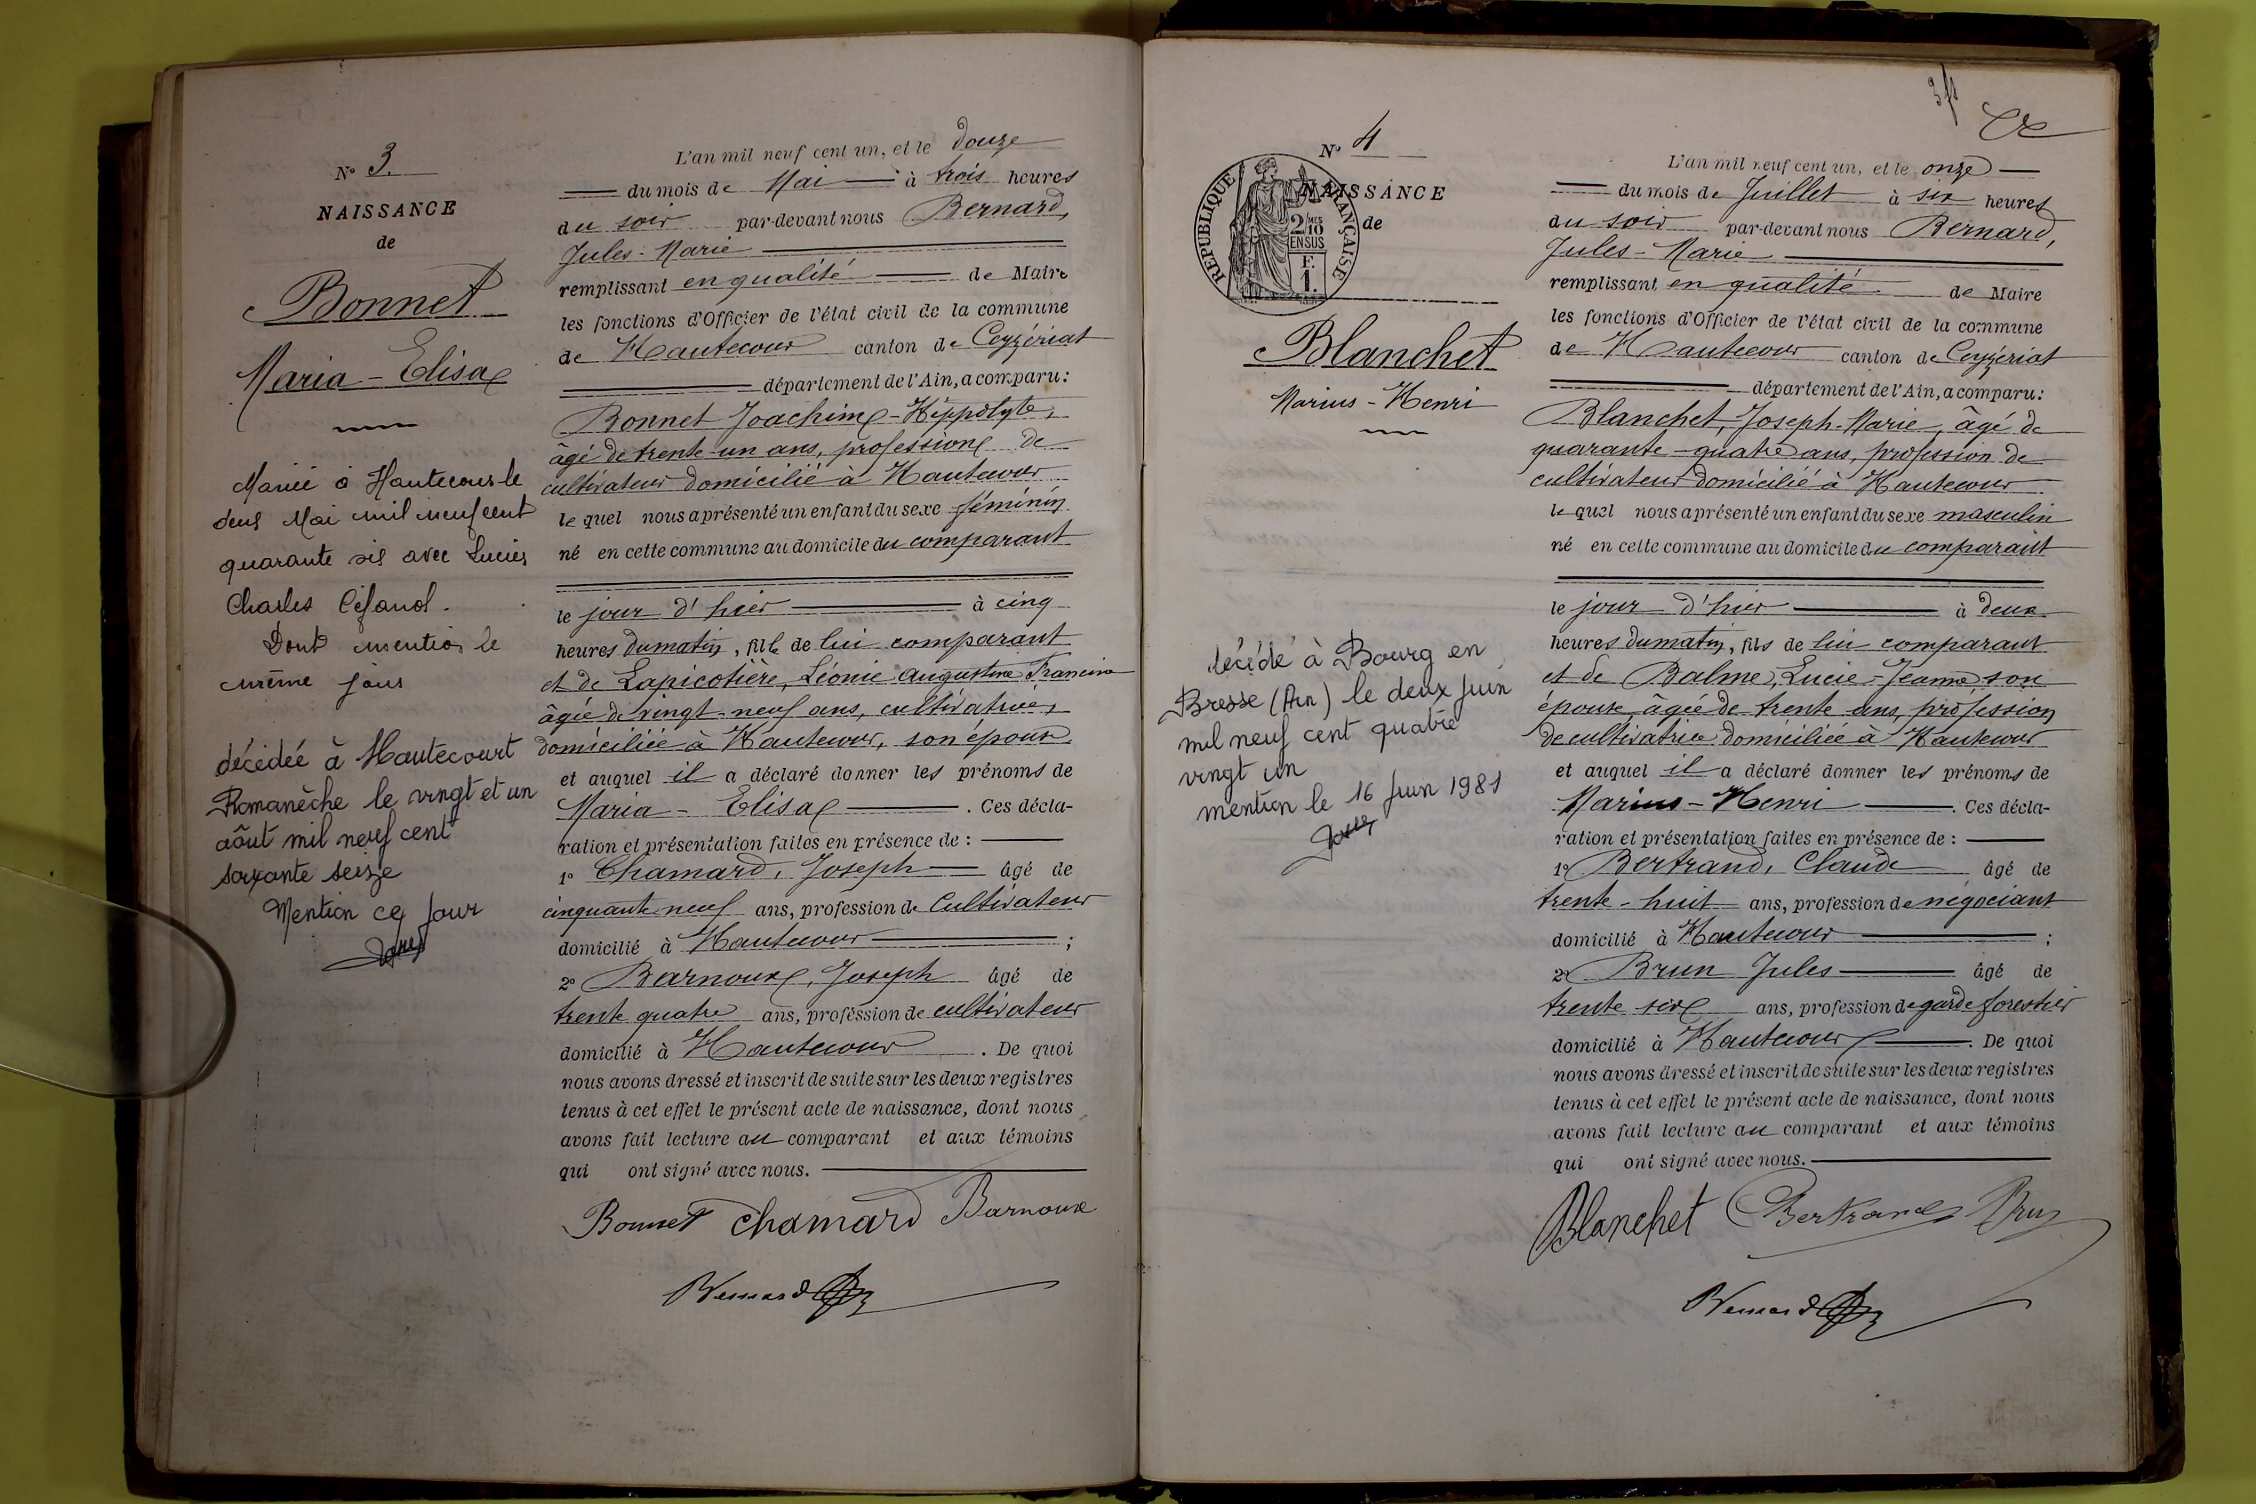 N° 3.
NAISSANCE
de
Bonnet
Maria - Elisa
Mariée à Hautecour le
deux Mai mil neuf cent
quarante six avec Lucien
Charles
Dont mention le
même jour
décédée à Hautecourt
Romanèche le vingt et un
aôut mil neuf cent
soixante seize
Mention ce jour
L'an mil neuf cent un, et le douze
du mois de Mai à trois heures
du soir par-devant nous Bernard,
Jules-Marie
remplissant en qualité de Maire
les fonctions d'Officier de l'état civil de la commune
de Hautecour canton de Ceyzériat
département de l'Ain, a comparu:
Bonnet Joachim-Hippolyte,
âgé de trente-un ans, profession de
cultivateur domicilié à Hautecour
le quel nous a présenté un enfant du sexe féminin
né en cette commune au domicile du comparant
le jour d'hier à cinq
heures du matin, fille de lui comparant
et de Lapicotière, Léonie Augustine Francine
âgée de vingt-neuf ans, cultivatrice,
domiciliée à Hautecour, son épouse
et auquel il a déclaré donner les prénoms de
Maria - Elisa . Ces décla-
ration et présentation faites en présence de :
1° Chamard, Joseph âgé de
cinquante neuf ans, profession de Cultivateur
domicilié à Hautecour ;
2° Barnoux, Joseph âgé de
trente quatre ans, profession de cultivateur
domicilié à Hautecour . De quoi
nous avons dressé et inscrit de suite sur les deux registres
tenus à cet effet le présent acte de naissance, dont nous
avons fait lecture au comparant et aux témoins
qui ont signé avec nous.
Bonnet Chamard Barnoux
Bernard
3/1
N° 4
NAISSANCE
de
RÉPUBLIQUE FRANÇAISE
2/10 MES
EN SUS
F.
1.
Blanchet
Marius - Henri
décédé à Bourg en
Bresse (Ain) le deux juin
mil neuf cent quatre
vingt un
mention le 16 juin 1981
L'an mil neuf cent un, et le onze
du mois de Juillet à six heures
du soir par-devant nous Bernard,
Jules-Marie
remplissant en qualité de Maire
les fonctions d'Officier de l'état civil de la commune
de Hautecour canton de Ceyzériat
département de l'Ain, a comparu:
Blanchet, Joseph-Marie, âgé de
quarante-quatre ans, profession de
cultivateur domicilié à Hautecour
le quel nous a présenté un enfant du sexe masculin
né en cette commune au domicile du comparant
le jour d'hier à deux
heures du matin, fils de lui comparant
et de Balme, Lucie-Jeanne, son
épouse, âgée de trente ans, profession
de cultivatrice domiciliée à Hautecour
et auquel il a déclaré donner les prénoms de
Marius-Henri . Ces décla-
ration et présentation faites en présence de :
1° Bertrand, Claude âgé de
trente-huit ans, profession de négociant
domicilié à Hautecour ;
2° Brun Jules âgé de
trente six ans, profession de garde forestier
domicilié à Hautecour . De quoi
nous avons dressé et inscrit de suite sur les deux registres
tenus à cet effet le présent acte de naissance, dont nous
avons fait lecture au comparant et aux témoins
qui ont signé avec nous.
Blanchet Bertrand Brun
Bernard